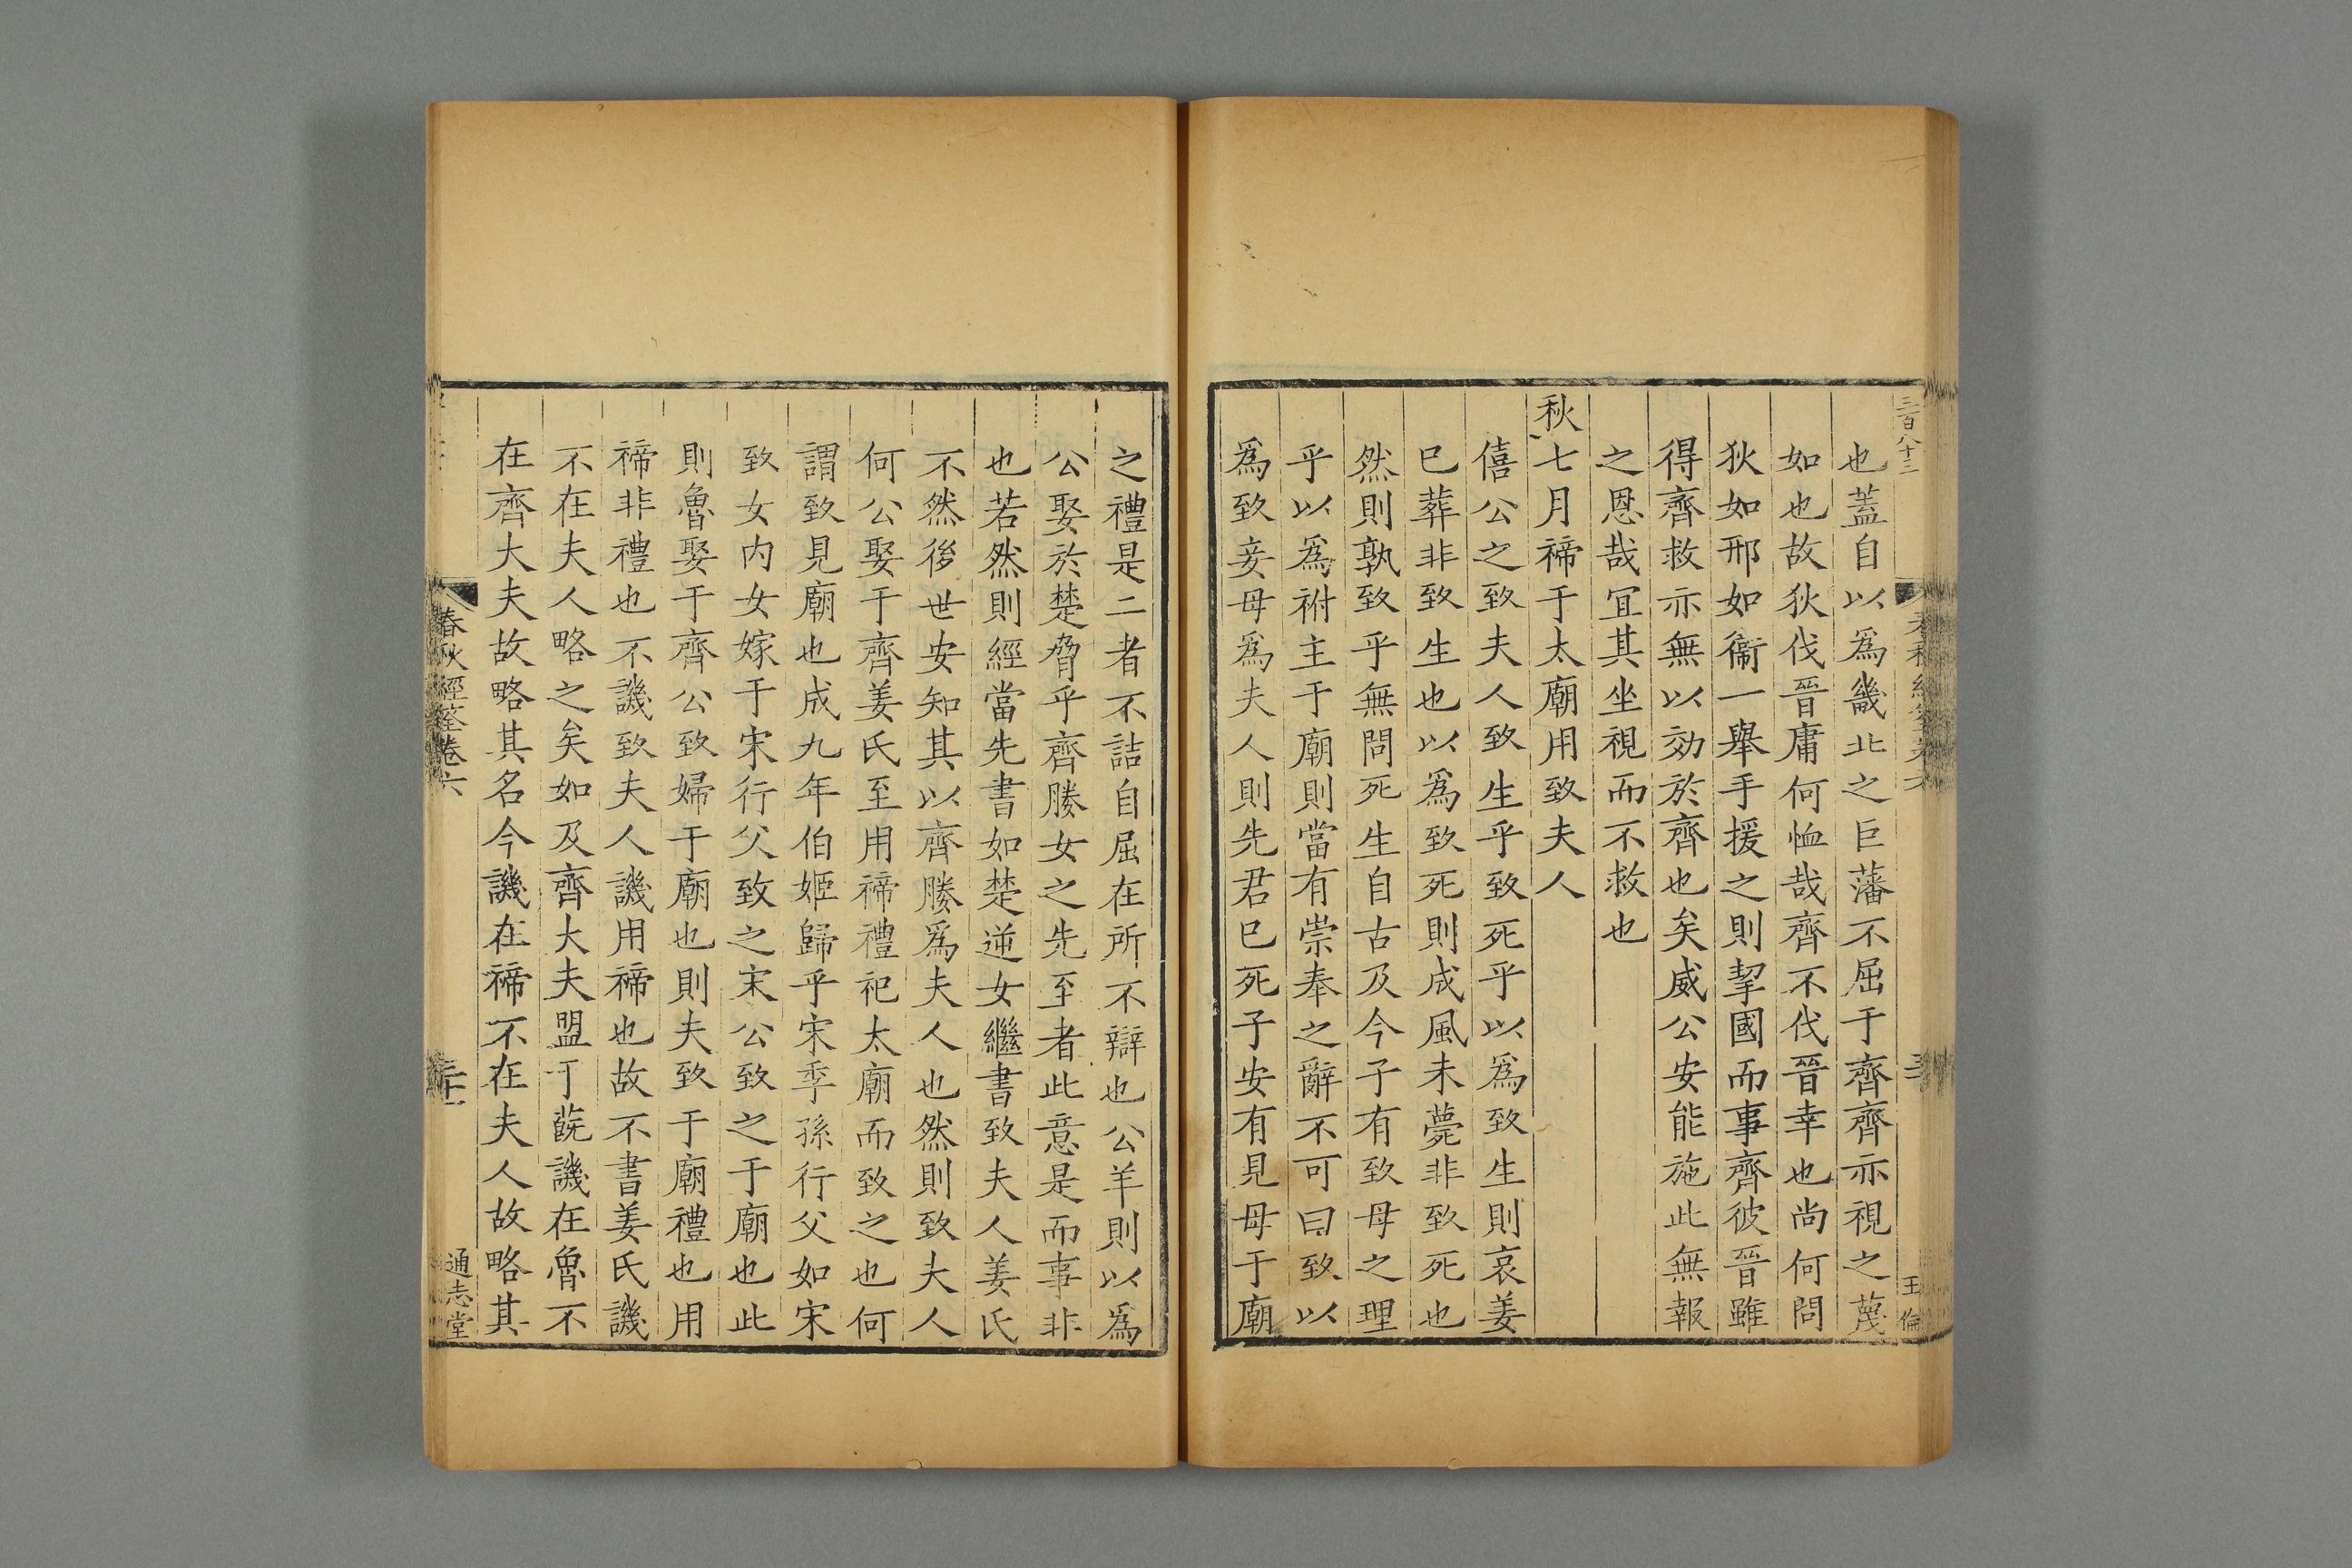 三百八十三
也蓋自以為畿北之巨藩不屈于齊齊亦視之蔑
如也故狄伐晉庸何恤哉齊不伐晉幸也尚何問
狄如邢如衞一舉手援之則挈國而事齊彼晉雖
得齊救亦無以効於齊也矣威公安能施此無報
之恩哉冝其坐視而不救也
秋七月禘于太廟用致夫人
僖公之致夫人致生乎致死乎以為致生則哀姜
已葬非致生也以為致死則成風未薨非致死也
然則孰致乎無問死生自古及今子有致母之理
乎以為祔主于廟則當有崇奉之辭不可曰致以
為致妾母為夫人則先君已死子安有見母于廟
王倫
之禮是二者不詰自屈在所不辯也公羊則以為
公娶於楚脅乎齊媵女之先至者此意是而事非
也若然則經當先書如楚逆女繼書致夫人姜氏
不然後世安知其以齊媵為夫人也然則致夫人
何公娶于齊姜氏至用禘禮祀太廟而致之也何
謂致見廟也成九年伯姬歸乎宋季孫行父如宋
致女内女嫁于宋行父致之宋公致之于廟也此
則魯娶于齊公致婦于廟也則夫致于廟禮也用
禘非禮也不譏致夫人譏用禘也故不書姜氏譏
不在夫人略之矣如及齊大夫盟于蔇譏在魯不
在齊大夫故略其名今譏在禘不在夫人故略其
春秋經筌卷六
三十一
通志堂